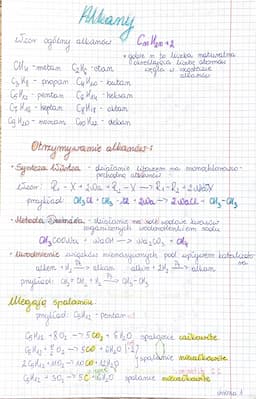 Alkany
Wzór ogólny alkanów CnH2n+2
gdzie n to liczba naturalna
określająca liczbę atomów
węgla w cząsteczce
alkanów
CH4 - metan C2H6 - etan
C3H8 - propan C4H10 - butan
C5H12 - pentan C6H14 - heksan
C7H16 - heptan C8H18 - oktan
C9H20 - nonan C10H22 - dekan
Otrzymywanie alkanów:
• Synteza Würtza - działanie sodem na monochlorowco-
pochodną alkanów
Wzór: R1-X + 2Na + R2-X → R1-R2 + 2NaX
przykład: CH3Cl + CH3Cl + 2Na → 2NaCl + CH3-CH3
• Metoda Dumasa - działanie na sole kwasów
organicznych wodorotlenkiem sodu
CH3COONa + NaOH → Na2CO3 + CH4
• Uwodornienie związków nienasyconych pod wpływem katalizato-
ra
alken + H2 → alkan alkin + 2H2 → alkan
przykład: CH2=CH2 + H2 → CH3-CH3
Ulegają spalaniu:
przykład: C5H12 - pentan
C5H12 + 8O2 → 5CO2 + 6H2O spalanie całkowite
C5H12 + O2 → 5CO + 6H2O
2C5H12 + 11O2 → 10CO + 12H2O spalanie niecałkowite
C5H12 + 3O2 → 5C + 6H2O spalanie niecałkowite
strona 1